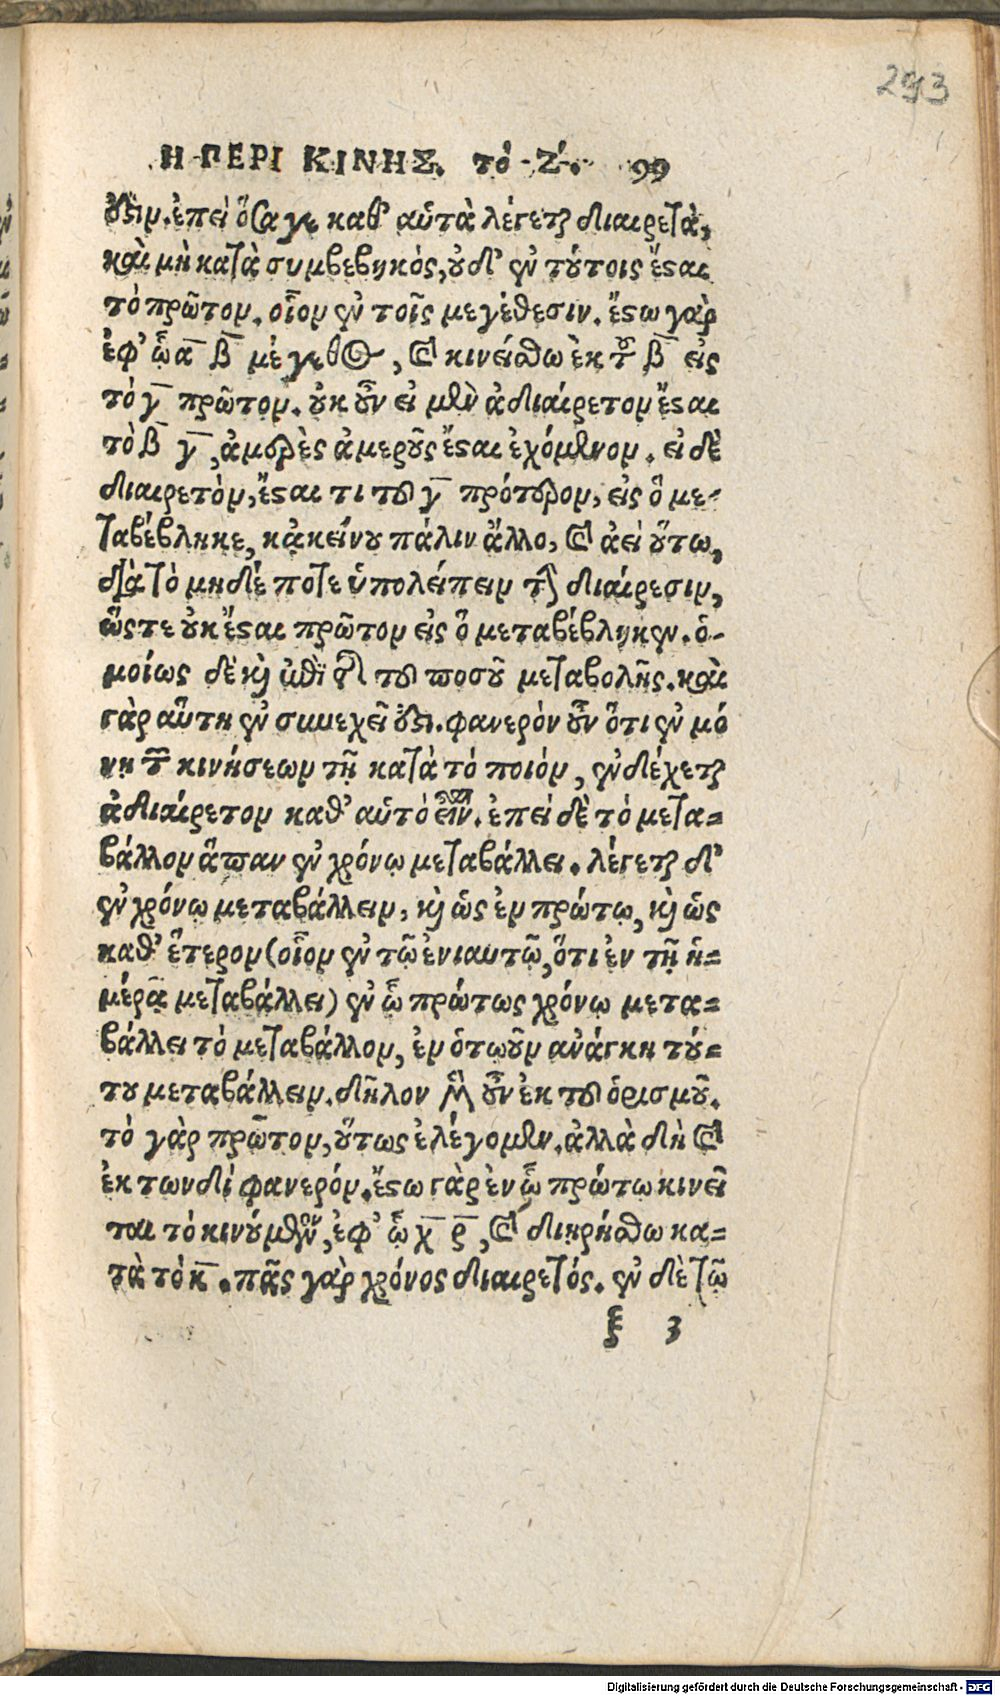 293
Η ΠΕΡΙ ΚΙΝΗΣ. τὸ ·Ζ·. 99
ἐϛιν. ἐπεὶ ὅσα γε καθ' αὑτὰ λέγεται διαιρετὰ,
καὶ μὴ κατὰ συμβεβηκός, οὐδ' ἐν τούτοις ἔϛαι
τὸ πρῶτον. οἷον ἐν τοῖς μεγέθεσιν. ἔϛω γὰρ
ἐφ' ᾧ α β μέγεθος, καὶ κινείσθω ἐκ τοῦ β εἰς
τὸ γ πρῶτον. οὐκ οὖν εἰ μὲν ἀδιαίρετον ἔϛαι
τὸ β γ, ἀμερὲς ἀμεροῦς ἔϛαι ἐχόμενον. εἰ δὲ
διαιρετὸν, ἔϛαι τι τοῦ γ πρότερον, εἰς ὃ με-
ταβέβληκε, κἀκείνου πάλιν ἄλλο, καὶ ἀεὶ οὕτω,
διὰ τὸ μηδέποτε ὑπολείπειν τὴν διαίρεσιν,
ὥςτε οὐκ ἔϛαι πρῶτον εἰς ὃ μεταβέβληκεν. ὁ-
μοίως δὲ καὶ ἐπὶ τῆς τοῦ ποσοῦ μεταβολῆς. καὶ
γὰρ αὕτη ἐν συνεχεῖ ἐϛι. φανερὸν οὖν ὅτι ἐν μό
νῃ τῶν κινήσεων τῇ κατὰ τὸ ποιόν, ἐνδέχεται
ἀδιαίρετον καθ' αὑτὸ εἶναι. ἐπεὶ δὲ τὸ μετα-
βάλλον ἅπαν ἐν χρόνῳ μεταβάλλει. λέγεται δ'
ἐν χρόνῳ μεταβάλλειν, καὶ ὡς ἐν πρώτῳ, καὶ ὡς
καθ' ἕτερον (οἷον ἐν τῷ ἐνιαυτῷ, ὅτι ἐν τῇ ἡ-
μέρᾳ μεταβάλλει) ἐν ᾧ πρώτως χρόνῳ μετα-
βάλλει τὸ μεταβάλλον, ἐν ὁτῳοῦν ἀνάγκη τού-
του μεταβάλλειν. δῆλον μὲν οὖν ἐκ τοῦ ὁρισμοῦ.
τὸ γὰρ πρῶτον, οὕτως ἐλέγομεν. ἀλλὰ δὴ καὶ
ἐκ τωνδὶ φανερόν. ἔϛω γὰρ ἐν ᾧ πρώτῳ κινεῖ
ται τὸ κινούμενον, ἐφ' ᾧ χ ρ, καὶ διῃρήσθω κα-
τὰ τὸ κ. πᾶς γὰρ χρόνος διαιρετός. ἐν δὲ τῷ
ξ 3
Digitalisierung gefördert durch die Deutsche Forschungsgemeinschaft - DFG